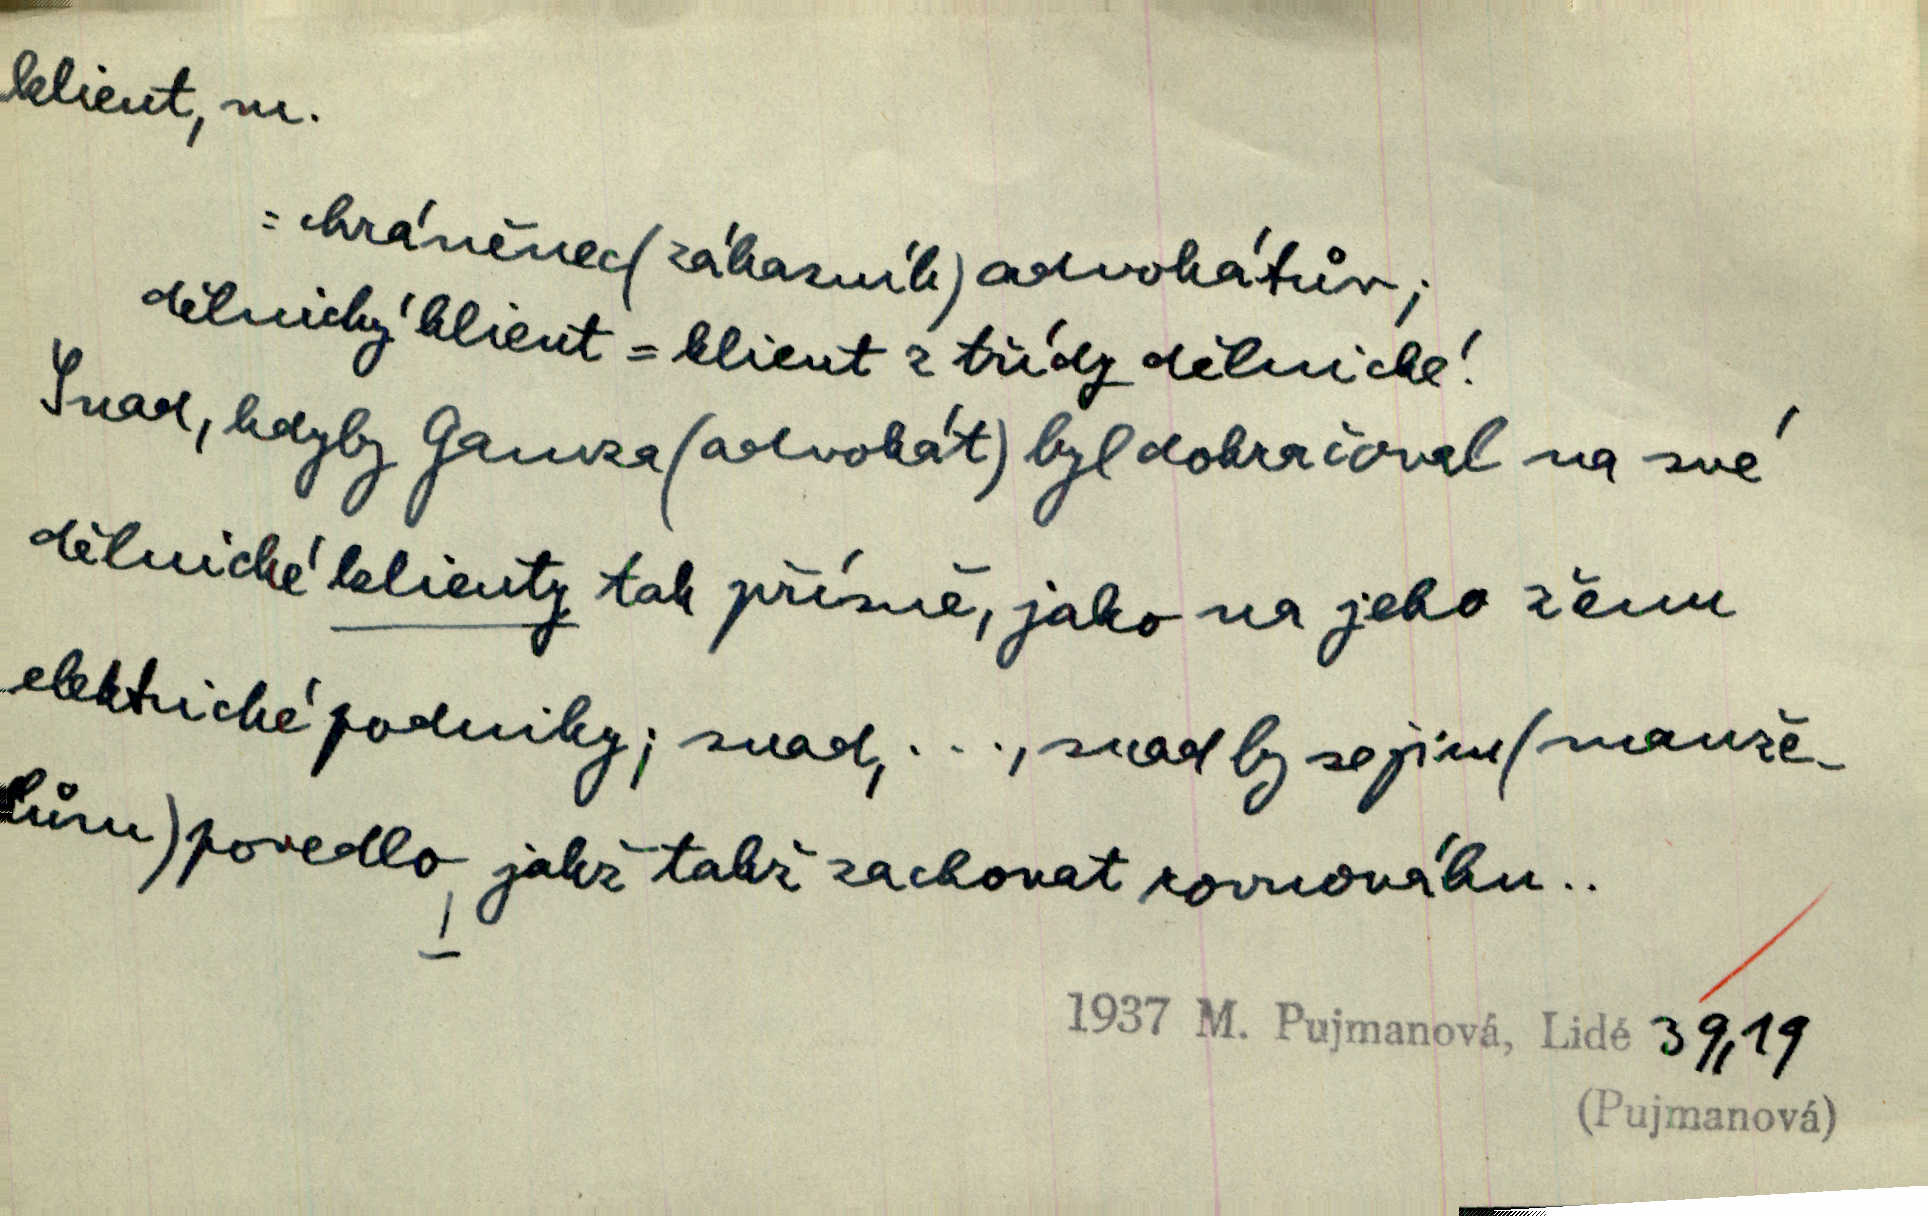 klient, m.
= chráněnec (zákazník) advokátův;
dělnický klient = klient z třídy dělnické!
Snad, kdyby Gamza (advokát) byl dokračoval na své
dělnické klienty tak přísně, jako na jeho ženu
elektrické podniky; snad, ..., snad by se jim (manže-
lům) povedlo, jakž takž zachovat rovnováhu..
1937 M. Pujmanová, Lidé 39,19
(Pujmanová)